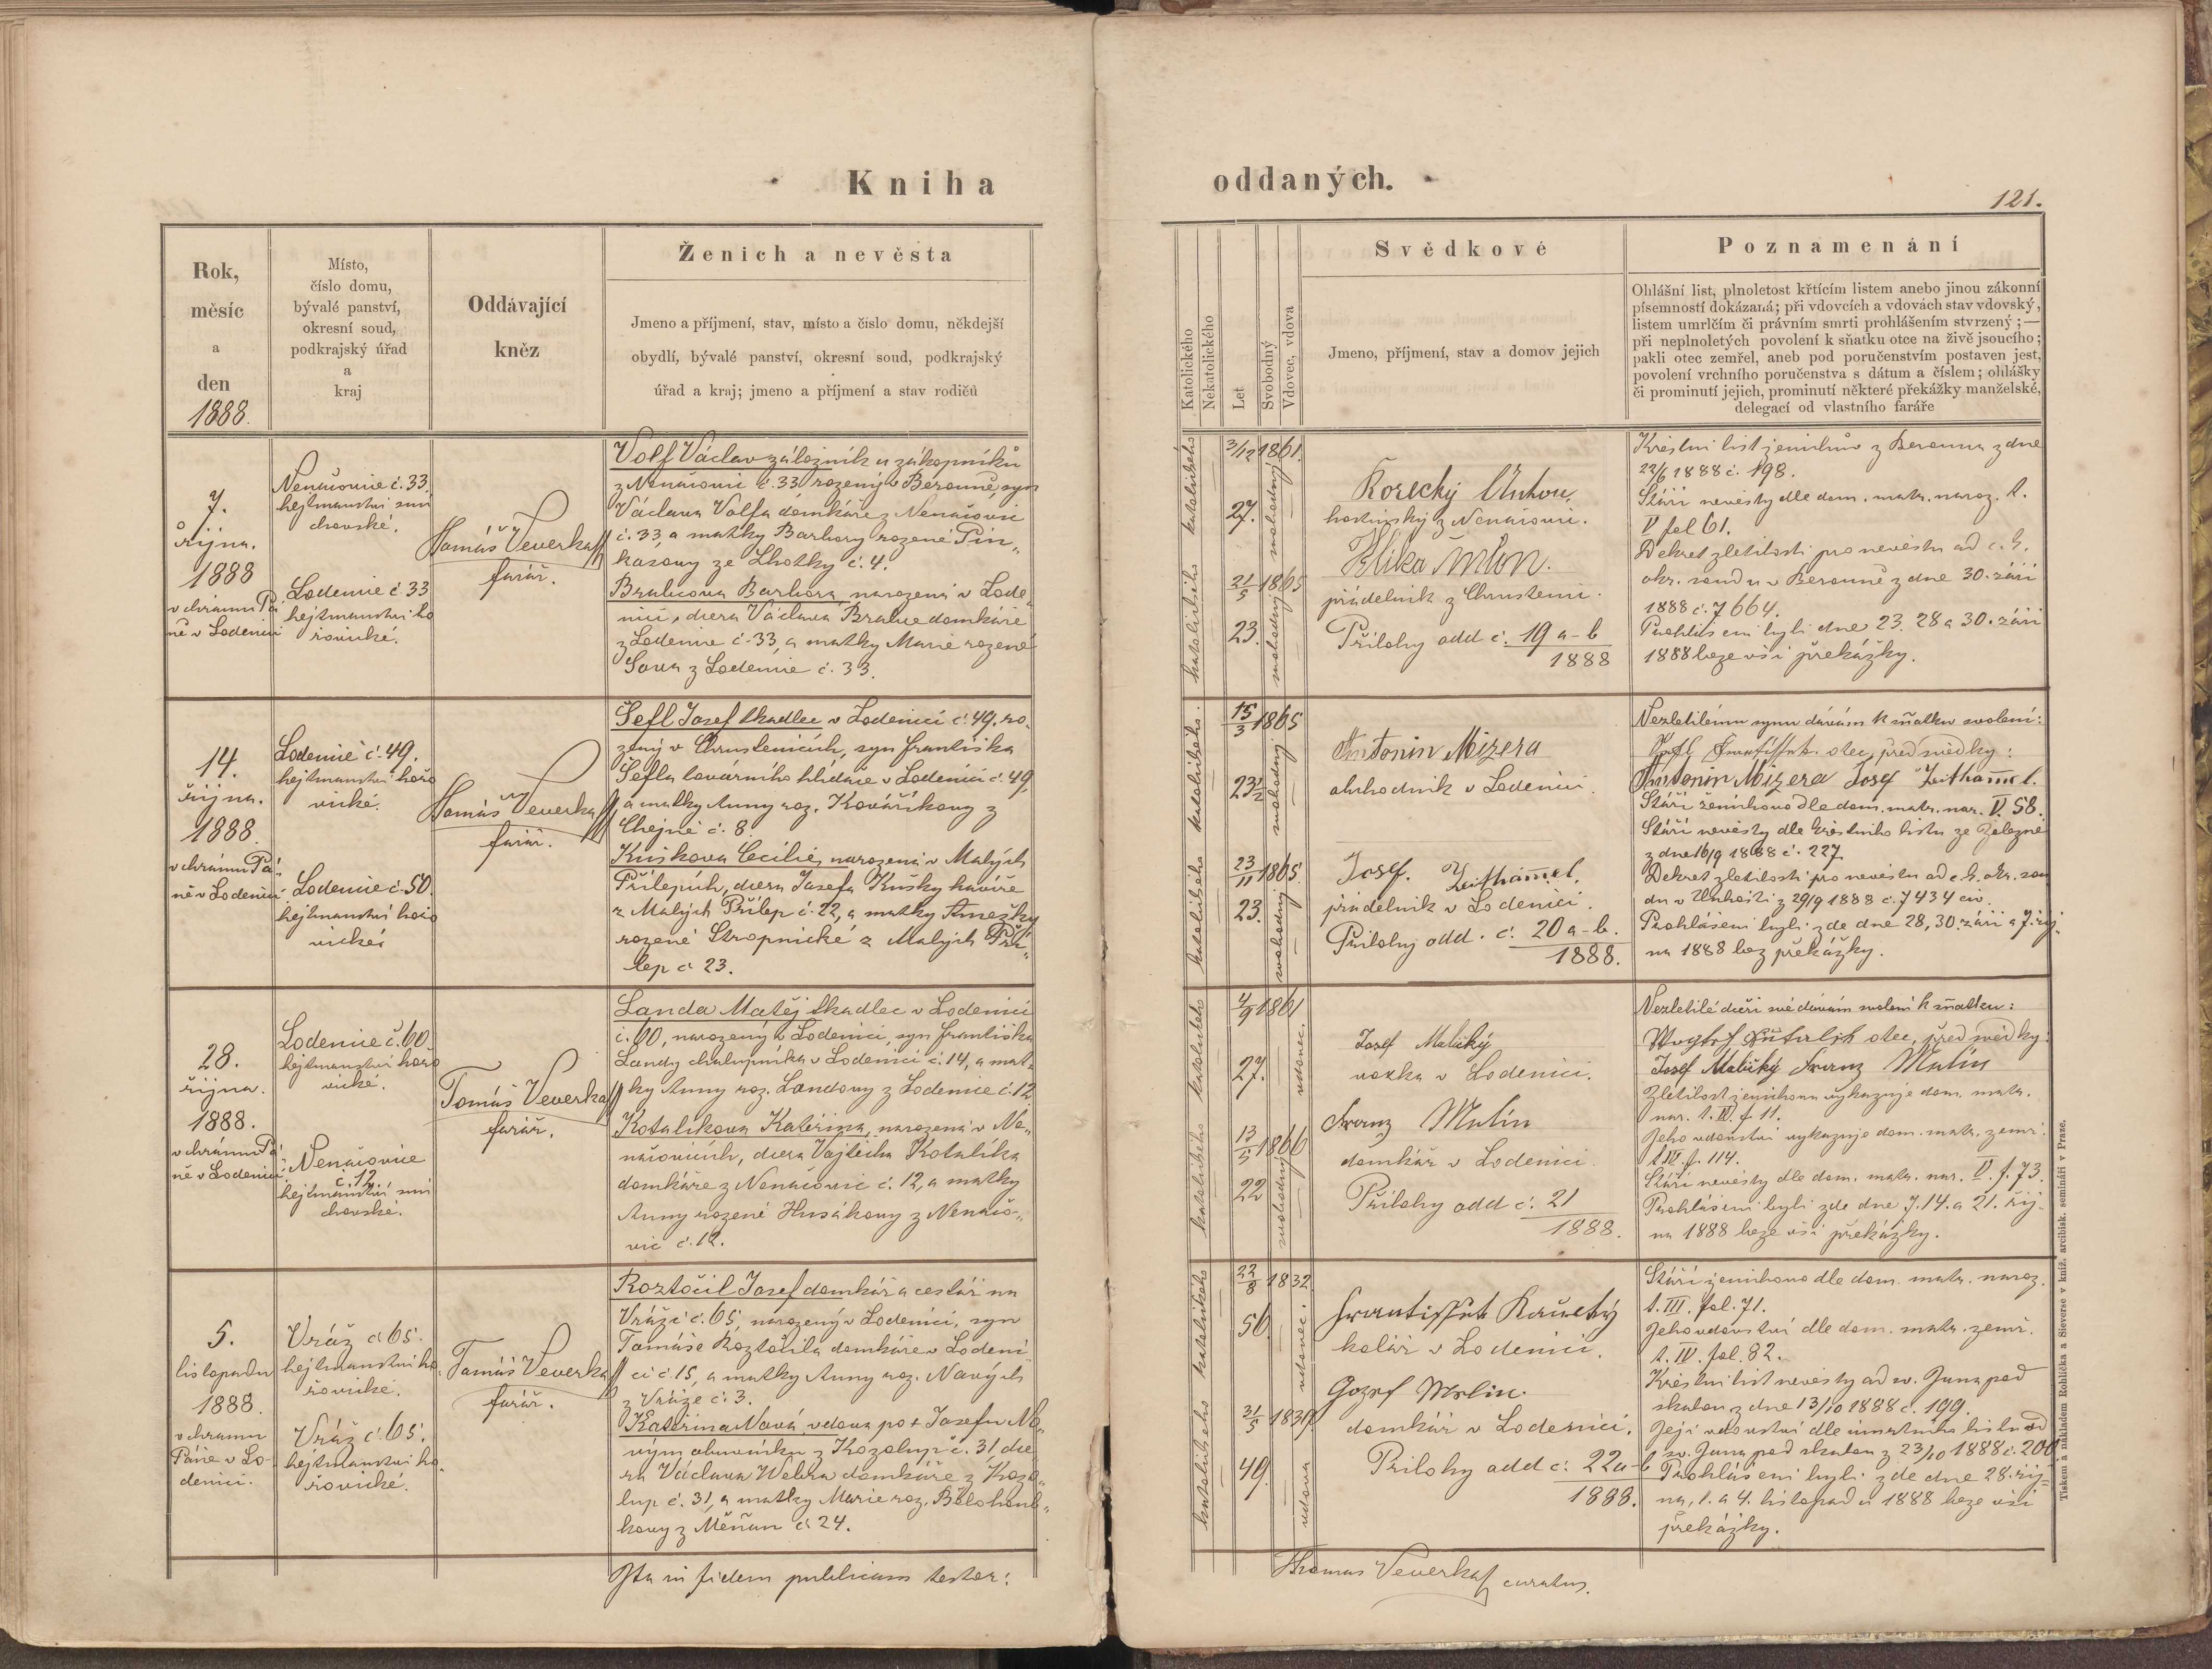 Kniha oddaných.
121.
Rok,
měsíc
a
den
1888.
Místo,
číslo domu,
bývalé panství,
okresní soud,
podkrajský úřad
a
kraj
Oddávající
kněz
Ženich a nevěsta
Jmeno a příjmení, stav, místo a číslo domu, někdejší
obydlí, bývalé panství, okresní soud, podkrajský
úřad a kraj; jmeno a příjmení a stav rodičů
Katolického
Nekatolického
Let
Svobodný
Vdovec, vdova
Svědkové
Jmeno, příjmení, stav a domov jejich
Poznamenání
Ohlášní list, plnoletost křtícím listem anebo jinou zákonní
písemností dokázaná; při vdovcích a vdovách stav vdovský,
listem umrlčím či právním smrti prohlášením stvrzený; —
při neplnoletých povolení k sňatku otce na živě jsoucího;
pakli otec zemřel, aneb pod poručenstvím postaven jest,
povolení vrchního poručenstva s dátum a číslem; ohlášky
či prominutí jejich, prominutí některé překážky manželské,
delegací od vlastního faráře
7.
října.
1888
v chrámu Pá
ně v Lodenici
Nenačovic č. 33
hejtmanství smí
chovské.
Lodenic č. 33
hejtmanství ho
řovické.
Tomáš Veverka
farář.
Volf Václav záložník u zákopníků
z Nenačovic č. 33 rozený v Berouně, syn
Václava Volfa domkáře z Nenačovic
č. 33, a matky Barbory rozené Pin„
kasovy ze Lhotky č. 4.
Brabcova Barbora, narozená v Lode„
nici, dcera Václava Brabce domkáře
z Lodenice č. 33, a matky Marie rozené
Sova z Lodenice č. 33.
katolického
katolického
3/12 1861.
27.
21/5 1865
23.
svobodný
svobodný
Korecký Anton,
hostinský z Nenačovic.
Klika
přádelník z Chrustenic.
Přílohy odd č. 19 a-b
1888
Křestní list ženichův z Berouna z dne
22/6 1888 č. 198.
Stáří nevěsty dle dom. matr. naroz. t.
V fol 61.
Dekret zletilosti pro nevěstu od c. k.
okr. soudu v Berouně z dne 30. září
1888 č. 7664.
Prohlášeni byli dne 23. 28 a 30. září
1888 beze vší překážky.
14.
října.
1888.
v chrámu Pá„
ně v Lodenici
Lodenic č. 49.
hejtmanství hořo
vické.
Lodenic č. 50.
hejtmanství hořo
vické
Tomáš Veverka
farář.
Šefl Josef tkadlec v Lodenici č. 49. ro„
zený v Chrustenicích, syn Františka
Šefla továrního hlídače v Lodenici č. 49,
a matky Anny roz. Kováříkovy z
Chejně č. 8.
Kuškova Cecilie, narozená v Malých
Přílepích, dcera Josefa Kušky havíře
z Malých Přílep č. 22, a matky Anežky
rozené Stropnické z Malých Pří„
lep č 23.
katolického
katolického
15/3 1865
23½
23/11 1865.
23.
svobodný
svobodný
Antonin Mizera
obchodník v Lodenici.
Josef. Zeithamel.
přadelník v Lodenici.
Přílohy odd. č. 20 a-b.
1888.
Nezletilému synu dávám k sňatku svolení:
otec, před svědky:
Antonin Mizera Josef Zeithamel.
Stáří ženichovo dle dom. matr. nar. V. 58.
Stáří nevěsty dle křestního listu ze Železné
z dne 16/9 1888 č. 227
Dekret zletilosti pro nevěstu od c. k. okr. sou
du v Unhošti z 29/9 1888 č. 7434 civ.
Prohlášeni byli zde dne 28, 30. září a 7. říj„
na 1888 bez překážky.
28.
října.
1888.
v chrámu Pá
ně v Lodenici
Lodenic č. 60
hejtmanství hořo
vické.
Nenačovice
č. 12.
hejtmanství smí
chovské.
Tomáš Veverka
farář.
Landa Matěj tkadlec v Lodenici
č. 60, narozený v Lodenici, syn Františka
Landy chalupníka v Lodenici č. 14, a mat„
ky Anny roz. Landovy z Lodenice č. 12.
Kotalikova Kateřina, narozená v Ne„
načovicích, dcera Vojtěcha Kotalíka
domkáře z Nenačovic č. 12, a matky
Anny rozené Husákovy z Nenačo„
vic č. 12.
katolického
katolického
4/9 1861
27.
13/5 1866
22
vdovec.
svobodný
Josef Malický
vozka v Lodenici.
Franz Malin
domkář v Lodenici.
Přílohy odd č. 21
1888.
Nezletilé dceři své dávám svolení k sňatku:
otec, před svědky:
Josef Malický Franz Malin
Zletilost ženichovu vykazuje dom. matr.
nar. t. IV. f. 11.
Jeho vdovství vykazuje dom. matr. zemř.
t. IV. f. 114.
Stáří nevěsty dle dom. matr. nar. V. f. 73.
Prohlášeni byli zde dne 7. 14. a 21. říj„
na 1888 beze vší překážky.
5.
listopadu
1888.
v chramu
Páně v Lo„
denici.
Vráž č 65.
hejtmanství ho„
řovické.
Vráž č. 65.
hejtmanství ho„
řovické.
Tomáš Veverka
farář.
Roztočil Josef domkář a cestář na
Vráži č. 65, narozený v Lodenici, syn
Tomáše Roztočila domkáře v Lodeni„
ci č. 15, a matky Anny roz. Nových
z Vráže č. 3.
Kateřina Nová vdova po † Josefu No„
vým obuvníku z Kozolup č. 31 dce
ra Václava Welka domkáře z Kozo„
lup č. 31, a matky Marie roz. Bělohoub„
kovy z Měňan č 24.
katolického
katolického
22/8 1832
56
31/5 1839.
49.
vdovec.
vdova
Frantissek Kaucký
kolář v Lodenici.
Gozef Malin.
domkář v Lodenici.
Přílohy odd č. 22 a-b
1888.
Stáří ženichovo dle dom. matr. naroz.
t. III. fol. 71.
Jeho vdovství dle dom. matr. zemř.
t. IV. fol. 82.
Křestní list nevěsty od sv. Jana pod
skalou z dne 13/10 1888 č. 199.
Její vdovství dle úmrtního listu od
sv. Jana pod skalou z 23/10 1888 č. 200
Prohlášeni byli zde dne 28. říj„
na, 1. a 4. listopadu 1888 beze vší
překážky.
Ita in fidem publicam testor:
Thomas Veverka curatus.
Tiskem a nákladem Rohlíčka a Sieverse v kníž. arcibisk. semináři v Praze.